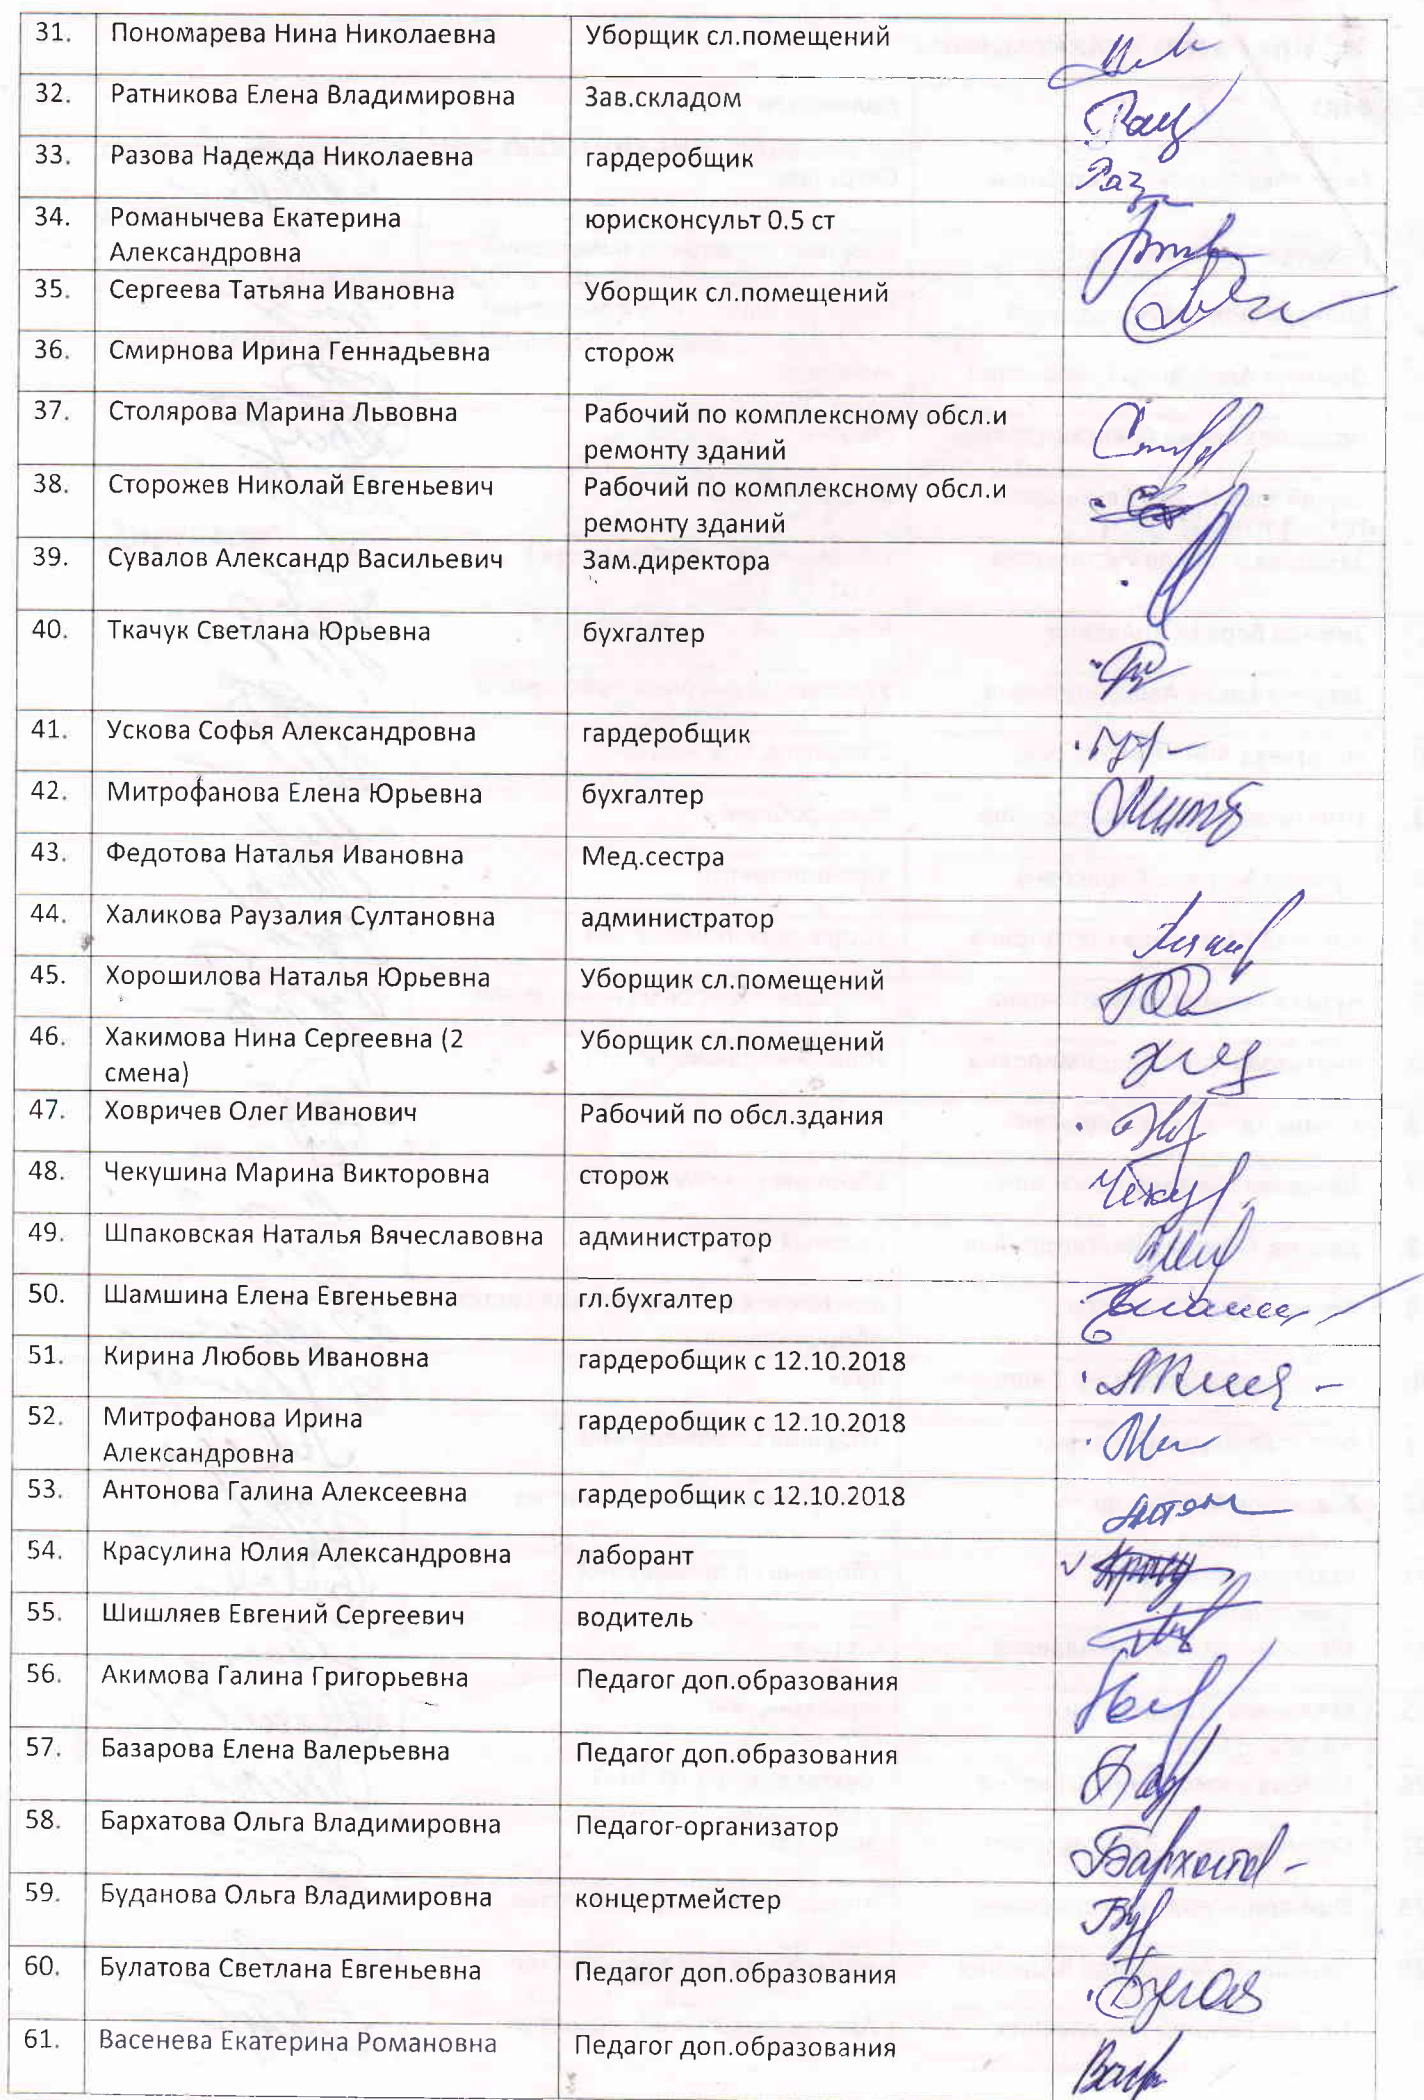 31. Пономарева Нина Николаевна Уборщик сл.помещений
32. Ратникова Елена Владимировна Зав.складом
33. Разова Надежда Николаевна гардеробщик
Раз
34. Романычева Екатерина юрисконсульт 0.5 ст
Александровна
35. Сергеева Татьяна Ивановна Уборщик сл.помещений
36. Смирнова Ирина Геннадьевна сторож
37. Столярова Марина Львовна Рабочий по комплексному обсл.и
ремонту зданий
38. Сторожев Николай Евгеньевич Рабочий по комплексному обсл.и
ремонту зданий
39. Сувалов Александр Васильевич Зам.директора
40. Ткачук Светлана Юрьевна бухгалтер
41. Ускова Софья Александровна гардеробщик
42. Митрофанова Елена Юрьевна бухгалтер
43. Федотова Наталья Ивановна Мед.сестра
44. Халикова Раузалия Султановна администратор
45. Хорошилова Наталья Юрьевна Уборщик сл.помещений
46. Хакимова Нина Сергеевна (2 Уборщик сл.помещений
смена)
47. Ховричев Олег Иванович Рабочий по обсл.здания
48. Чекушина Марина Викторовна сторож
Чекур
49. Шпаковская Наталья Вячеславовна администратор
50. Шамшина Елена Евгеньевна гл.бухгалтер
51. Кирина Любовь Ивановна гардеробщик с 12.10.2018
52. Митрофанова Ирина гардеробщик с 12.10.2018
Александровна
53. Антонова Галина Алексеевна гардеробщик с 12.10.2018
Антон
54. Красулина Юлия Александровна лаборант
55. Шишляев Евгений Сергеевич водитель
56. Акимова Галина Григорьевна Педагог доп.образования
57. Базарова Елена Валерьевна Педагог доп.образования
58. Бархатова Ольга Владимировна Педагог-организатор
Бархатов
59. Буданова Ольга Владимировна концертмейстер
60. Булатова Светлана Евгеньевна Педагог доп.образования
61. Васенева Екатерина Романовна Педагог доп.образования